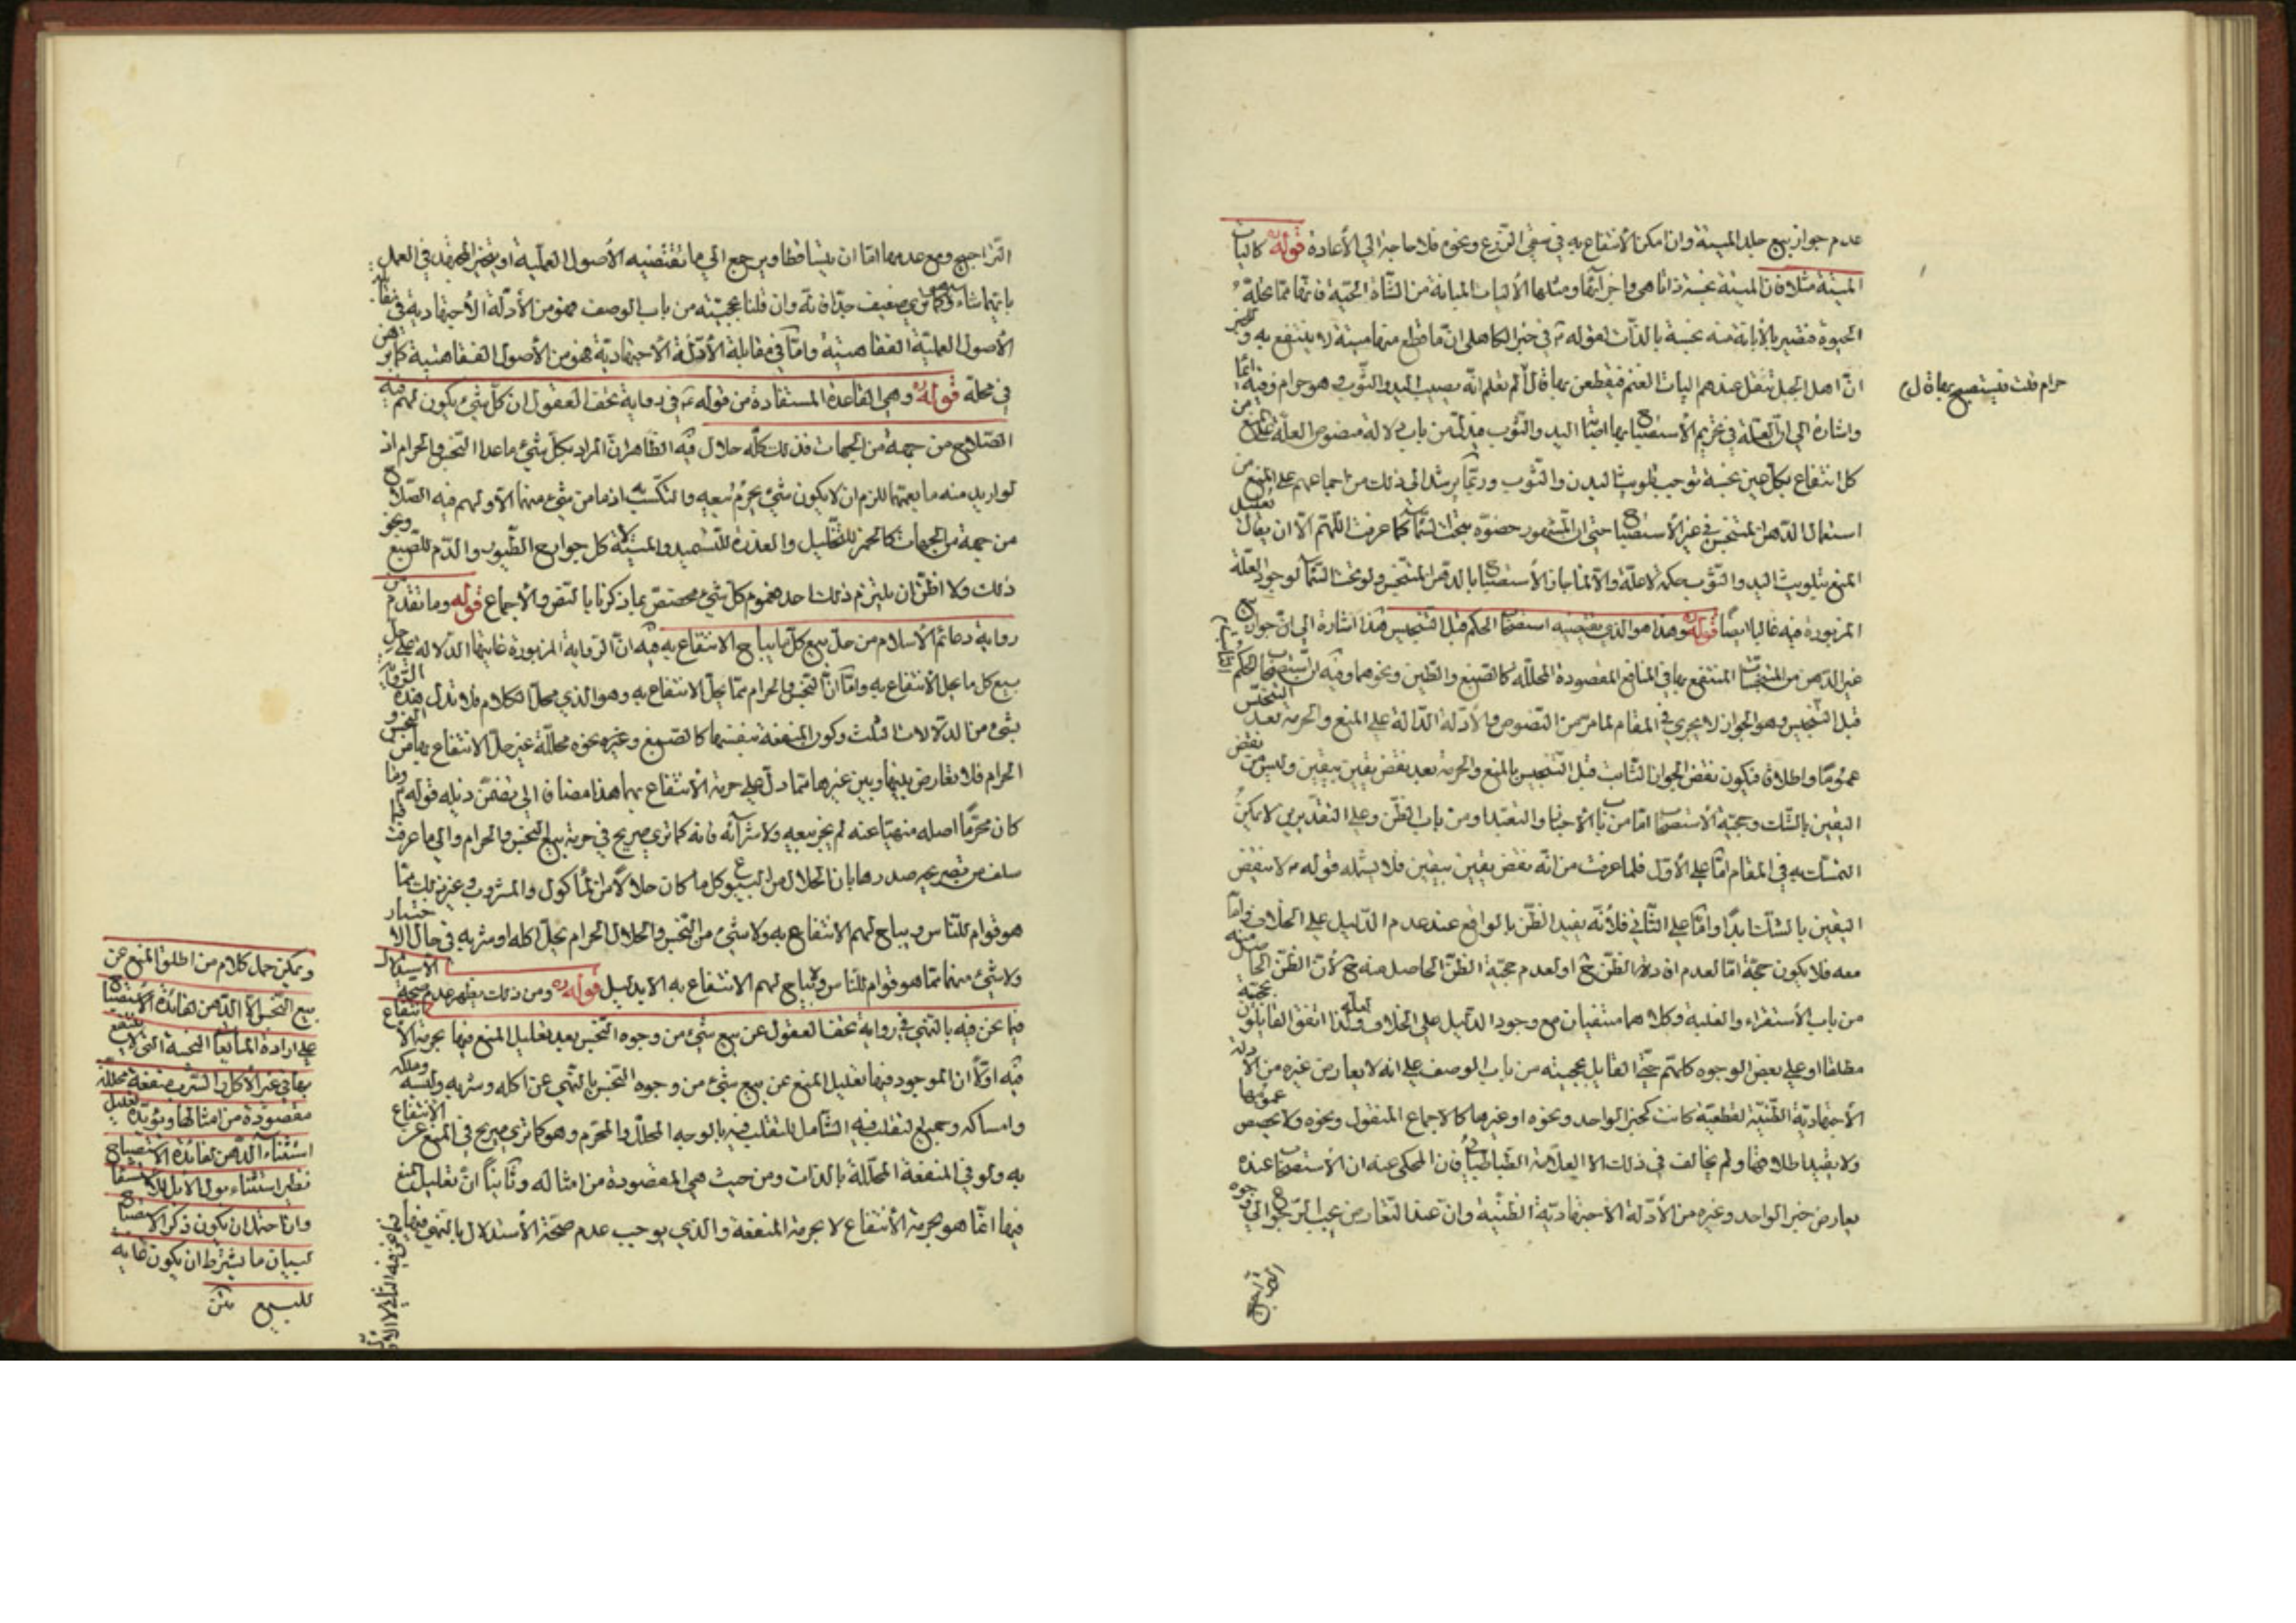 عدم جواز بيع جلد الميتة وان امكن الانتفاع به في سقي الزرع ونحوه فلا حاجة الي الأعادة قوله كاليات
الميتة مثلا فان الميتة نجسة ذاتا هي واجزائها ومثلها الأليات المبانة من الشاة الحية فانها مما تحله
الحيوة فتصير بالأبانة منه نجسة بالذات لقوله ع في خبر الكاهلي ان ما قطع منها ميتة لا ينتفع به وخبر
انّ اهل الجبل تثقل عندهم اليات الغنم فيقطعونها قال
حرام قلت فيستصبح بها قال
أما تعلم انّه يصيب اليد والثوب وهو حرام وفيه
واشارة الي ان العلة في تحريم الأستصباح بها اصابة اليد والثوب فيدل من باب دلالة منصوص العلة علي المنع من
كل انتفاع بكل عين نجسة توجب تلويث البدن والثوب وربما يرشد الي ذلك من اجماعهم علي المنع من
استعمال الدهن المتنجس في غير الأستصباح حتي ان المشهور حضوّه بتحت السماء كما عرفت اللهم الّا ان يقال تعليل
المنع بتلويث اليد والثوب حكمة لا علة والّا لما جاز الأستصباح بالدهن المتنجس ولو تحت السماء لوجود العلة
المزبورة فيه غالبا ايضًا قوله وهذا هو الذي يقتضيه استصحاب الحكم قبل التنجيس هذا اشارة الي ان جواز بيع
غير الدهن من المتنجسات المنتفع بها في المنافع المقصودة المحلله كالصبغ والطين ونحوهما وفيه ان استصحاب الحكم
قبل التنجيس وهو الجواز لا يجري في المقام لما مر من النصوص والأدلة الدالة علي المنع والحرمة بعد التنجس
عمومًا واطلاقا فيكون نقض الجواز الثابت قبل التنجيس بالمنع والحرمة بعده نقض يقين بيقين وليس من نقض
اليقين بالشك وحجية الأستصحاب امّا من باب الأخبار والتعبد او من باب الظن وعلي التقديرين لا يمكن
التمسك به في المقام امّا علي الأول فلما عرفت من انّه نقض يقين بيقين فلا يشمله قوله ع لا ينقض
اليقين بالشك ابدًا وامّا علي الثاني فلأنّه يفيد الظن بالواقع عند عدم الدليل علي الخلاف وامّا
معه فلا يكون حجّة امّا لعدم افادته الظن ح او لعدم حجية الظن الحاصل منه ح لأنّ الظن الحاصل منه
من باب الأستقراء والغلبة وكلاهما منتفيان مع وجود الدليل علي الخلاف ولذا اتفق القايلون بحجيّة
مطلقا او علي بعض الوجوه كلّهم حتّي القايل بحجيته من باب الوصف علي انه لا يعارض غيره من الأدلة
الأجتهاديّة الظنيّة لقطعية كانت كخبر الواحد ونحوه او غيرها كالاجماع المنقول ونحوه ولا يخصص عمومها
ولا يقيد اطلاقها ولم يخالف في ذلك الا العلّامة الطباطبائي فان المحكي عنه ان الأستصحاب عنده
يعارض خبر الواحد وغيره من الأدلة الأجتهاديّة الظنّية وان عند التعارض يجب الرجوع الي وجوه
التراجيح
التراجيح ومع عدمها امّا ان يتساقطا ويرجع الي ما تقتضيه الأصول العمليّة او يتخير المجتهد في العمل
بايّهما شاء وهو كما تري ضعيف جدّا فانّه وان قلنا بحجيّته من باب الوصف فهو من الأدلّة الأجتهاديّة في مقابل
الأصول العمليّة الفقاهتية وامّا في مقابلة الأدلّة الأجتهاديّة فهو من الأصول الفقاهتية كما برهن
في محلّه قوله وهي القاعدة المستفادة من قوله ع في رواية تحف العقول ان كلّ شيئ يكون لهم فيه
الصّلاح من جهة من الجهات فذلك كلّه حلال فيه الظاهر ان المراد بكلّ شيئ ما عدا النّجس والحرام اذ
لو اريد منه ما يعمّها للزم ان لا يكون شيئ يحرم بيعه والتكسّب به اذ ما من شيئ منها الّا ولهم فيه الصّلاح
من جهة من الجهات كالخمر للتخليل والعذرة للتسميد والميتة لأكل جوارح الطيور والدّم للصّبغ ونحو
ذلك ولا اظنّ ان يلتزم ذلك احد فعموم كلّ شيئ مخصّص بما ذكرنا بالنّص والأجماع قوله وما تقدم من
رواية دعائم الأسلام من حلّ بيع كلّ ما يباح الانتفاع به فيه انّ الرّواية المزبورة غايتها الدلالة علي حلّ
بيع كل ما يحلّ الأنتفاع به وامّا انّ النّجس والحرام ممّا يحلّ الانتفاع به وهو الذي محلّ الكلام فلا تدلّ هذه الرّواية
بشئ من الدلالات الثلث وكون المنفعة بنفسها كالتصبيغ وغيره نحوه محلّلة غير حلّ الانتفاع بها من النجس و
الحرام فلا تعارض بينها وبين غيرها ممّا دلّ علي حرمة الأنتفاع بهما هذا مضافا الي تضمّن ذيله قوله ع وما
كان محرّما اصله منهيّا عنه لم يجز بيعه ولا شرآئه فانه كما تري صريح في حرمة بيع النجس والحرام والي ما عرفت فيما
سلف من تصريح صدرها بان الحلال من البيوع كل ما كان حلالًا من المأكول والمشروب وغير ذلك ممّا
هو قوام للنّاس ويباح لهم الأنتفاع به ولا شئ من النّجس والحلال الحرام يحلّ اكله او شربه في حال الاختيار
ولا شيئ منهما ممّا هو قوام للنّاس ولا يباح لهم الانتفاع به الا بدليل قوله ومن ذلك يظهر عدم صحّة الأستدلال
فيما نحن فيه بالنّهي في رواية تحف العقول عن بيع شيئ من وجوه النّجس بعد تعليل المنع فيها بحرمة الأنتفاع
فيه اوّلًا ان الموجود فيها تعليل المنع عن بيع شيئ من وجوه النّجس بالنّهي عن اكله وشربه ولبسه وملكه
وامساكه وجميع التقلّب فيه الشامل للتقلّب فيه بالوجه المحلّل والمحرّم وهو كما تري صريح في المنع عن الأنتفاع
به ولو في المنفعة المحلّلة بالذات ومن حيث هي المقصودة من امثاله وثانياً انّ تعليل المنع
فيها انّما هو بحرمة الأنتفاع لا بحرمة المنفعة والذي يوجب عدم صحّة الأستدلال بالنّهي فيها
ويمكن حمل كلام من اطلق المنع عن
بيع النّجس الّا الدّهن لفائدة الأستصباح
علي ارادة المايعات النجسة التي لا ينتفع
بها في غير الأكل والشرب منفعة محلّلة
مقصودة من امثالها ويؤيّده تعليل
استثناء الدّهن بفائدة الاستصباح
نظير استثناء بول الابل للاستشفاء
وان احتمل ان يكون ذكر الاستصباح
لبيان ما يشترط ان يكون غاية
للبيع متن